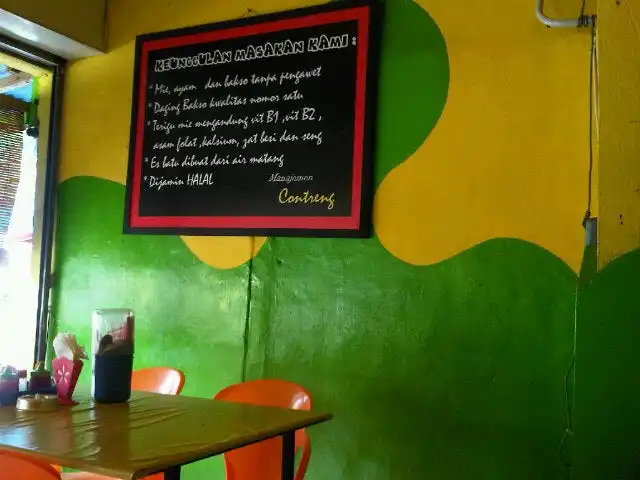 KEUNGGULAN MASAKAN KAMI :
* Mie, ayam dan bakso tanpa pengawet
* Daging Bakso kwalitas nomor satu
* Terigu mie mengandung vit B1 ,vit B2 ,
asam folat ,kalsium, zat besi dan seng
* Es batu dibuat dari air matang
* Dijamin HALAL
Manajemen
Contreng